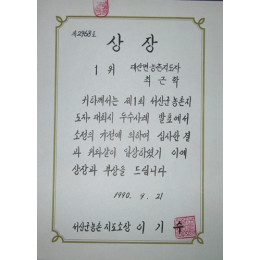 제2968호
상 장
1 위 대산면 농촌지도사
최 근 학
귀하께서는 제1회 서산군 농촌지
도사 대회시 우수사례 발표에서
소정의 과정에 의하여 심사한 결
과 위와같이 입상하였기 이에
상장과 부상을 드립니다
1990. 9. 21
서산군농촌지도소장 이 기